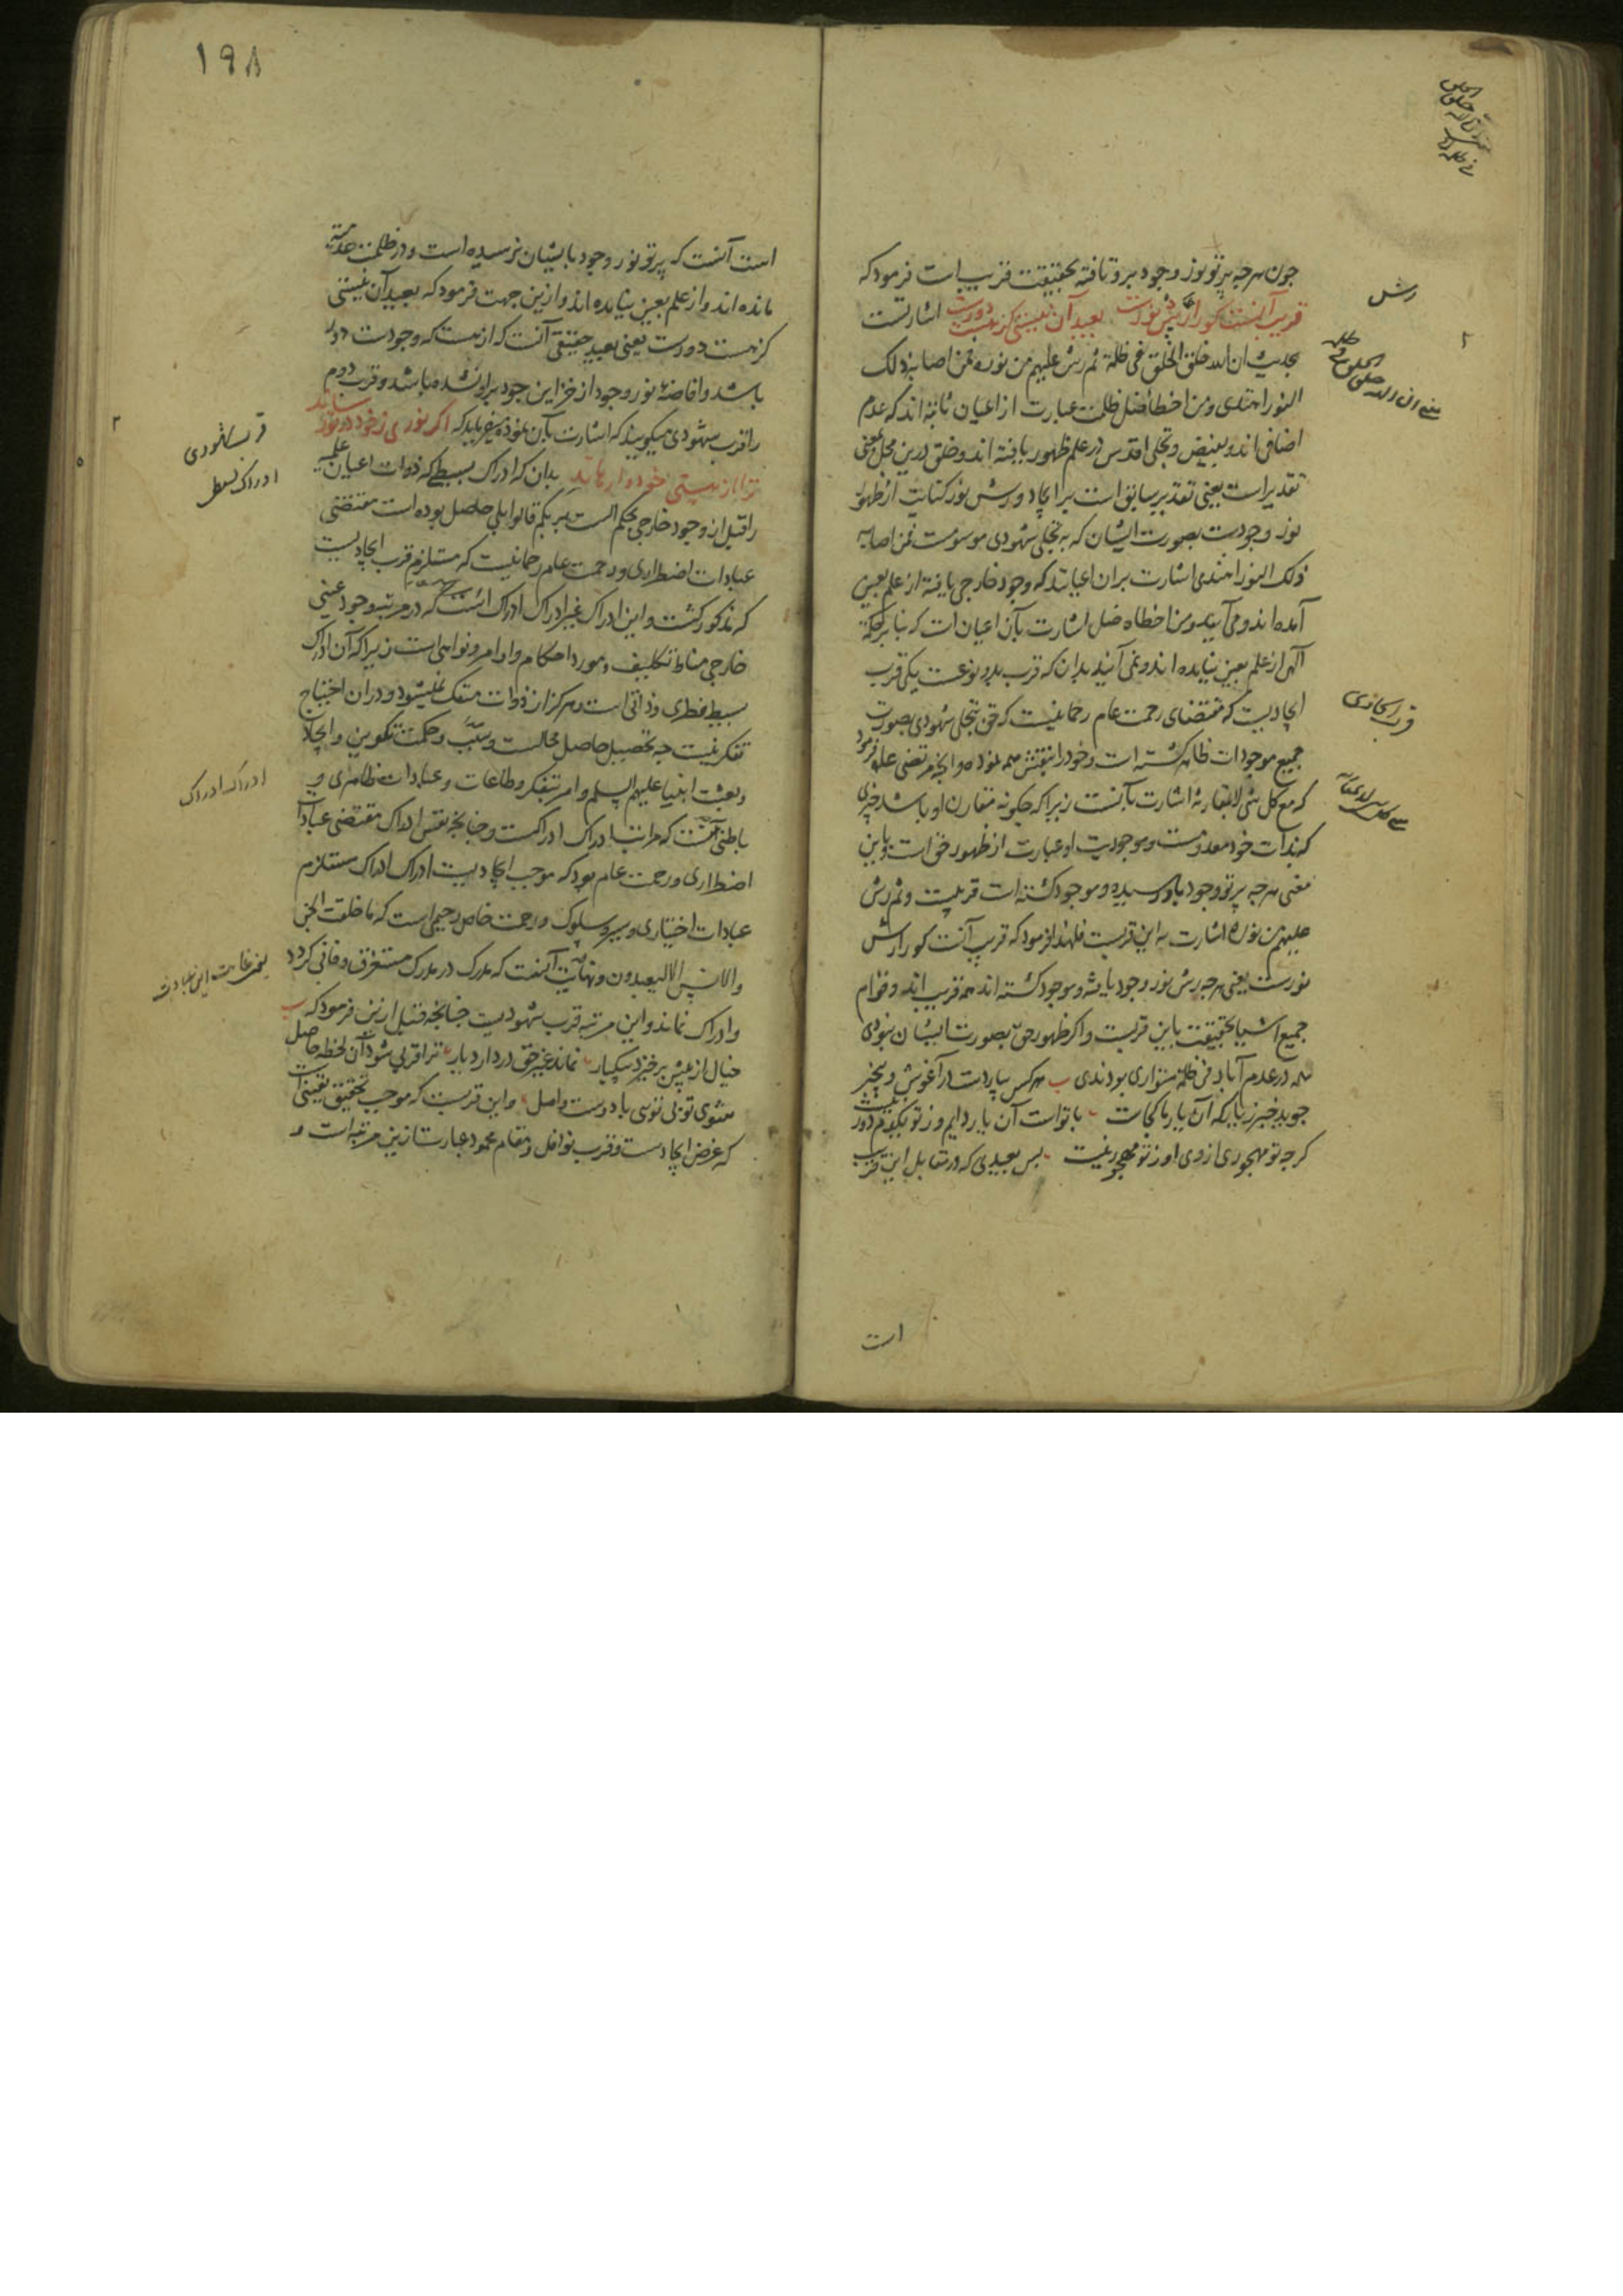 چون هرچه پرتو نور وجود برو تافته بحقیقت قریب است فرمود که
قریب آنست کورا رش نورست بعید آن نیستی کز هست دورست اشارتست
بحدیث ان الله خلق الخلق فی ظلمة ثم رش علیهم من نوره فمن اصابه ذلک
النور اهتدی ومن اخطأ ضل ظلمت عبارت از اعیان ثابته اند که عدم
اضافی اند و بفیض و تجلی اقدس در علم ظهور یافته اند و خلق درین محل بمعنی
تقدیر است یعنی تقدیر سابق است بر ایجاد و رش نور کنایت از ظهور
نور وجودست بصورت ایشان که به تجلی شهودی موسومست فمن اصابه
ذلک النور اهتدی اشارت بران اعیانند که وجود خارجی یافته از علم بعین
آمده اند و می آیند ومن اخطاه ضل اشارت بآن اعیان است که بنا بر حکمة
آلهی از علم بعین نیامده اند و نمی آیند بدان که قرب بدو نوعست یکی قرب
ایجادیست که مقتضای رحمت عام رحمانیست که حق بتجلی شهودی بصورت
جمیع موجودات ظاهر گشته است و خود را بنقش همه نموده و آنچه مرتضی علی فرمود
که مع کل شی لا بمقارنة اشارت بآنست زیرا که چگونه مقارن او باشد چیزی
که بذات خود معدومست و موجودیت او عبارت از ظهور حق است و باین
معنی هرچه پرتو وجود باو رسیده و موجود گشته است قریبست و ثم رش
علیهم من نوره اشارت به این قربست فلهذا فرمود که قریب آنست کورا رش
نورست یعنی هرچه رش نور وجود یافته و موجود گشته اند همه قریب اند و قوام
جمیع اشیا بحقیقت باین قربست و اگر ظهور حق بصورت ایشان نبودی
همه در عدم آباد فی ظلمة متواری بودندی هرکس یاردست در آغوش و بیخبر
جوید خبر ز یار که آن یار ما کجاست با تواست آن یار دایم وز تو یکدم دور نیست
گرچه تو مهجوری از وی او ز تو مهجور نیست پس بعیدی که در مقابل این قرب
است
رش
قرب ایجادی
۱۹۸
است آنست که پرتو نور وجود بایشان نرسیده است و در ظلمت عدمیه
مانده اند و از علم بعین نیامده اند و ازین جهت فرمود که بعید آن نیستی
کز هست دورست یعنی بعید حقیقی آنست که از هست که وجودست دور
باشد و افاضهٔ نور وجود از خزاین جود برو نشده باشد و قرب دوم
را قرب شهودی میگویند که اشارت بآن نموده میفرماید که اگر نوری ز خود در تو رساند
ترا از هستی خود وارهاند بدان که ادراک بسیط که ذوات اعیان علمیه
را قبل از وجود خارجی بحکم الست بربکم قالوا بلی حاصل بوده است مقتضی
عبادات اضطراری و رحمت عام رحمانیست که مستلزم قرب ایجادیست
که مذکور گشت و این ادراک غیر ادراک ادراک است که در مرتبه وجود عینی
خارجی مناط تکلیف و مورد احکام و اوامر و نواهی است زیرا که آن ادراک
بسیط فطری و ذاتی است و هرگز از ذوات منفک نمیشود و دران احتیاج
تفکر نیست چه تحصیل حاصل محالست و سبب و حکمت تکوین و ایجاد
و بعثت انبیا علیهم السلم و امر بتفکر و طاعات و عبادات ظاهری و
باطنی آنست که مراتب ادراک ادراکست و چنانچه نفس ادراک مقتضی عبادات
اضطراری و رحمت عام بود که موجب ایجادیست ادراک ادراک مستلزم
عبادات اختیاری و سیر و سلوک و رحمت خاص رحیمی است که ما خلقت الجن
والانس الا لیعبدون و نهایت آنست که مدرک در مدرک مستغرق و فانی گردد
و ادراک نماند و این مرتبه قرب شهودیست چنانچه قبل ازین فرمود که
خیال از پیش برخیزد بیکبار نماند غیر حق در دار دیار ترا قربی شود آن لحظه حاصل
شوی تو بی توئی با دوست واصل و این قربست که موجب تحقیق یقینی است
که غرض ایجادست و قرب نوافل و مقام محمود عبارت ازین مرتبه است و
قرب شهودی
ادراک بسیط
ادراک ادراک